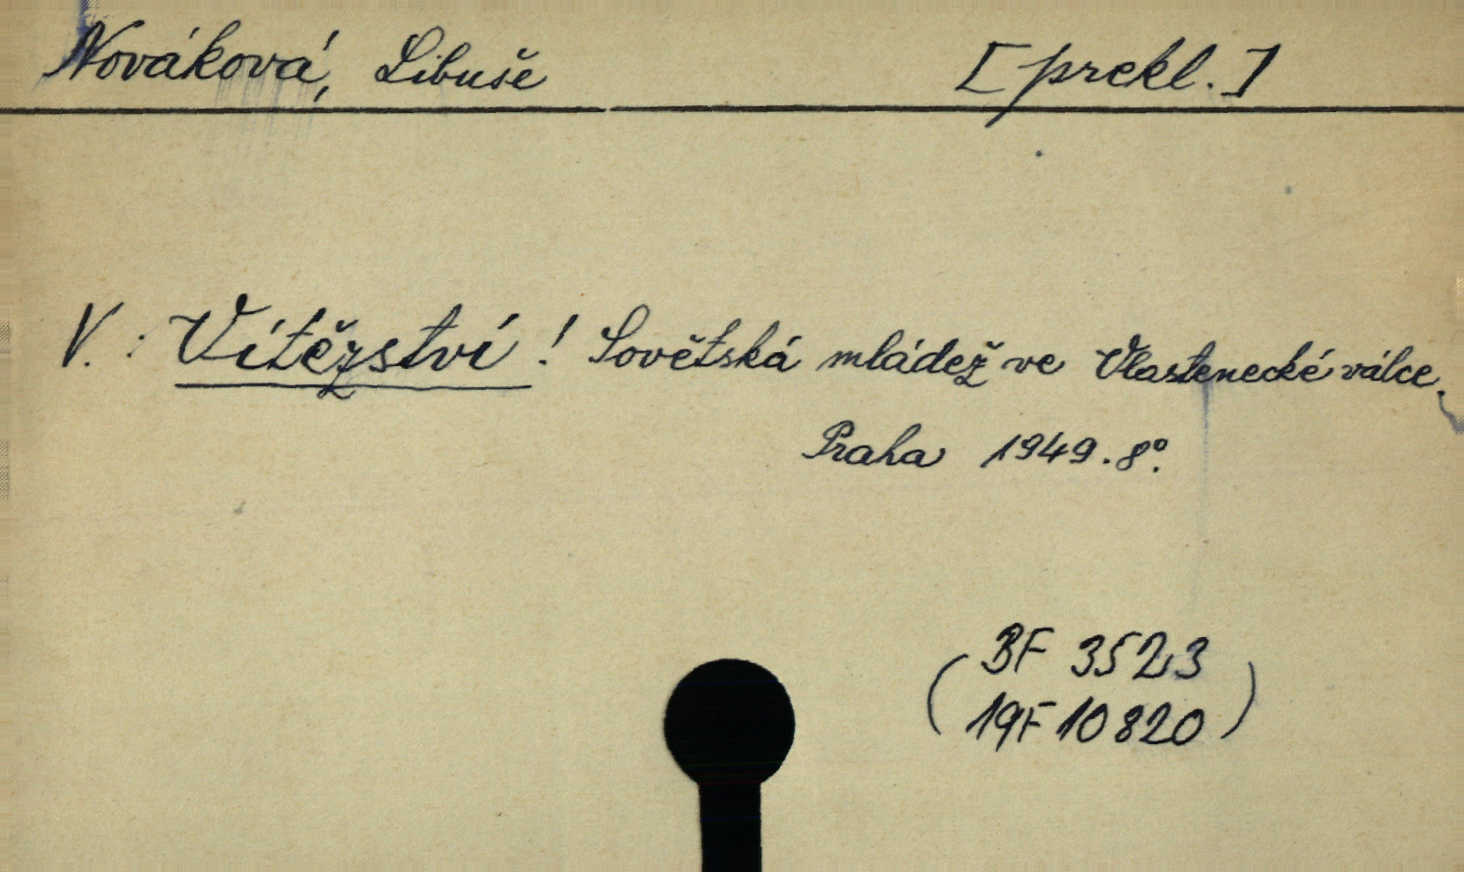 Nováková, Libuše [prekl.]
V.: Vítězství! Sovětská mládež ve Vlastenecké válce.
Praha 1949. 8°.
(BF 3523
19F 10820)